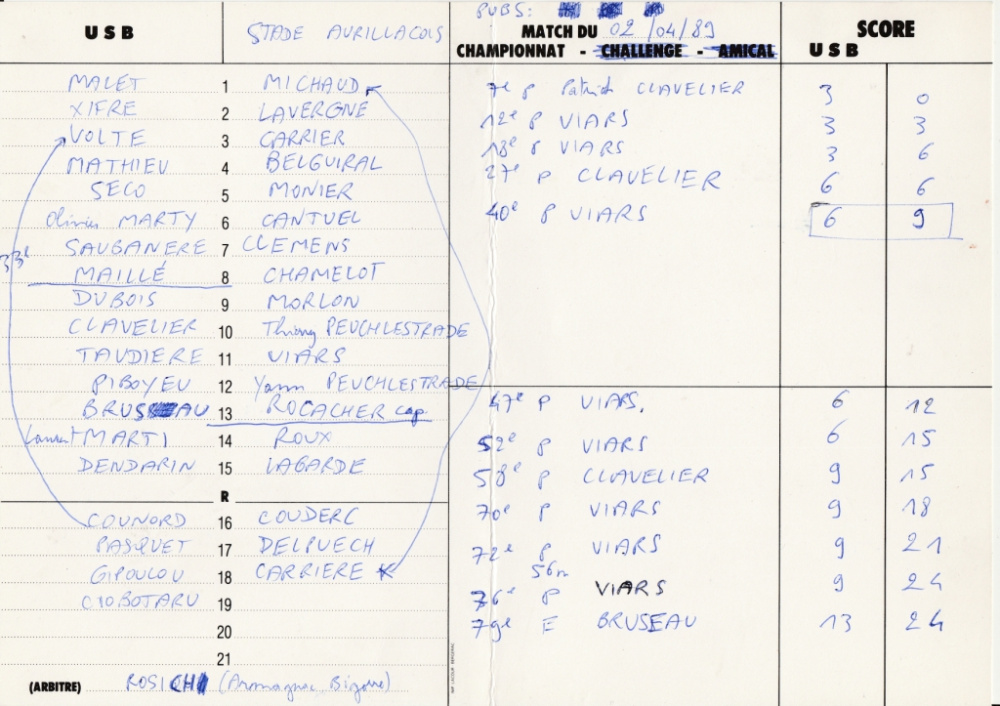 PUBS:
USB STADE AURILLACOIS MATCH DU 02/04/89 SCORE
CHAMPIONNAT - CHALLENGE - AMICAL USB
MALET 1 MICHAUD 7e P Patrick CLAVELIER 3 0
XIFRE 2 LAVERGNE 12e P VIARS 3 3
VOLTE 3 CARRIER 18e P VIARS 3 6
MATHIEU 4 BELGUIRAL 27e P CLAVELIER 6 6
SECO 5 MONIER
Olivier MARTY 6 CANTUEL 40e P VIARS 6 9
SAUBANERE 7 CLEMENS
33e
MAILLÉ 8 CHAMELOT
DUBOIS 9 MORLON
CLAVELIER 10 Thierry PEUCHLESTRADE
TAUDIERE 11 VIARS
PIBOYEU 12 Yann PEUCHLESTRADE
BRUSEAU 13 ROCACHER cap 47e P VIARS. 6 12
Laurent MARTI 14 ROUX 52e P VIARS 6 15
DENDARIN 15 LAGARDE 58e P CLAVELIER 9 15
R
COUNORD 16 COUDERC 70e P VIARS 9 18
PASQUET 17 DELPUECH 72e P VIARS 9 21
GIPOULOU 18 CARRIERE 56m
CIOBOTARU 19 76e P VIARS 9 24
20 79e E BRUSEAU 13 24
21
(ARBITRE) ROSICH (Armagnac, Bigorre)